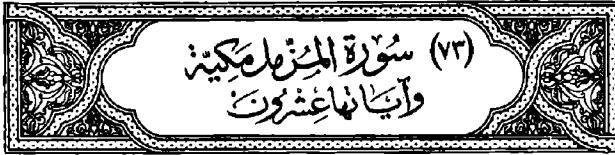 (٧٣) سُورَةُ المُزَّمِّلِ مَكِيَّة
وَآيَاتُهَا عِشْرُونَ